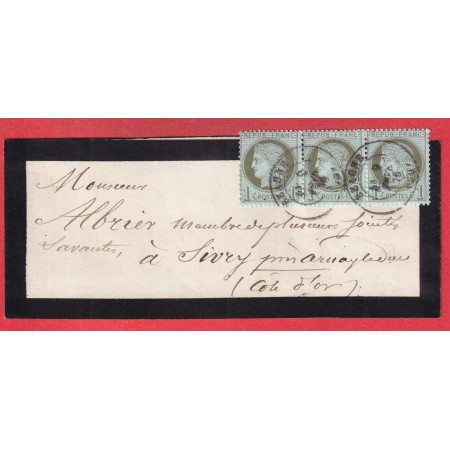 REPUB. FRANC REPUB. FRANC REPUB. FRANC
1 C POSTES POSTES POSTES C 1
Monsieur
Albrier membre de plusieurs sociétés
Savantes,
à Sivry près Arnay le duc
(Côte d'or)